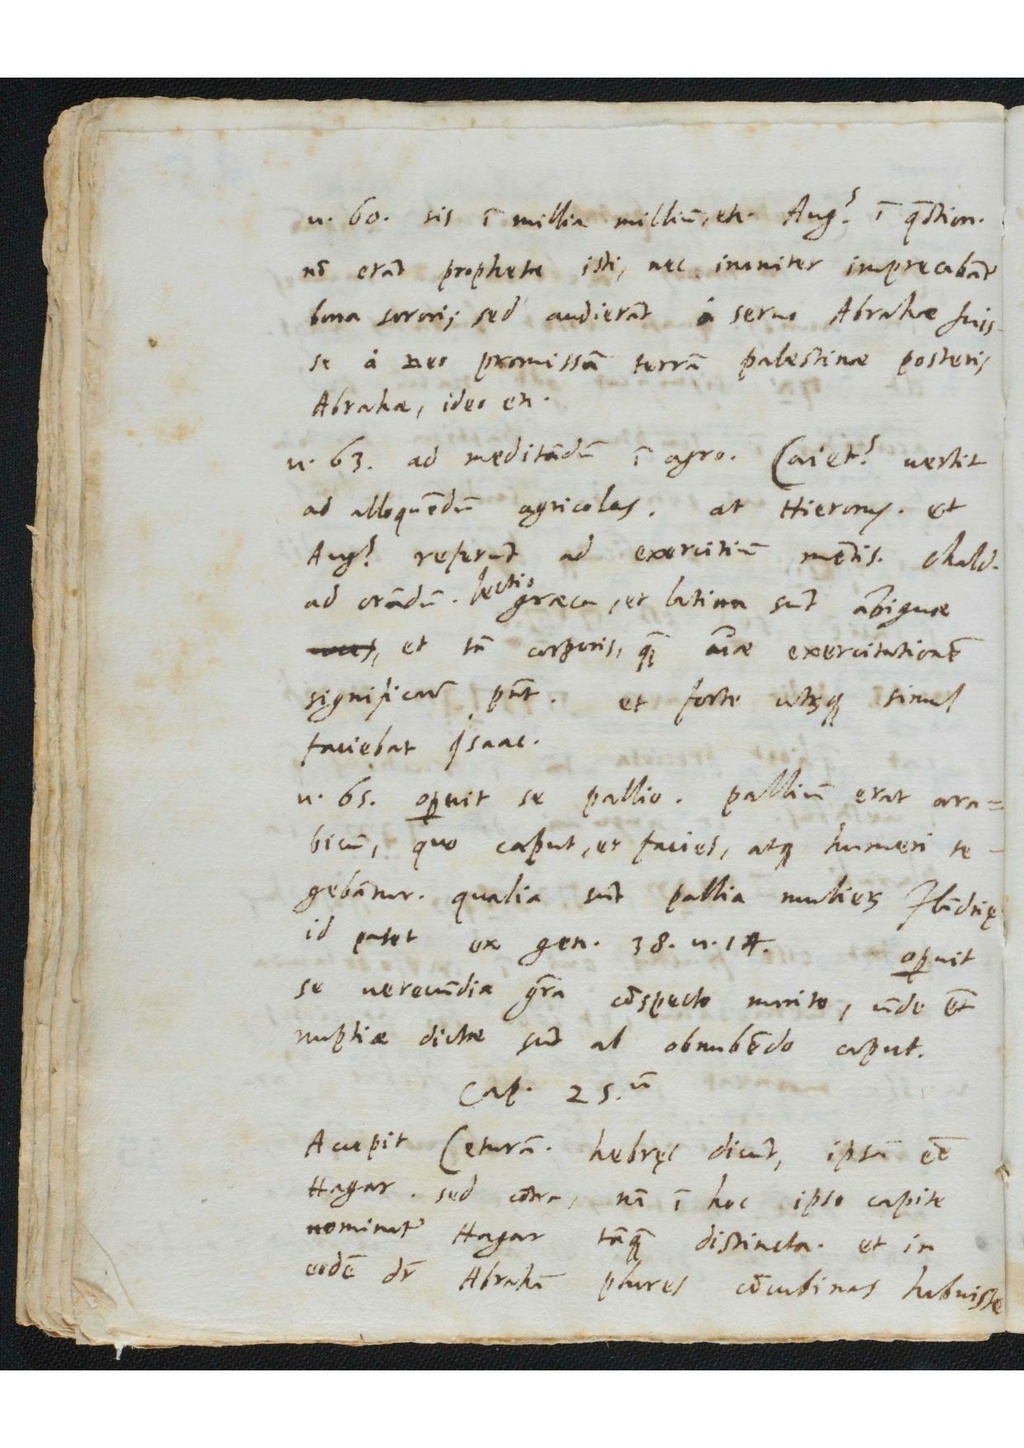 u. 60. sis ī millia milliū, etc. Augs. ī q̄stion.
nō erāt prophetæ isti, nec inaniter imprecabāt
bona sorori, sed audierāt à seruo Abrahæ fuis-
se à Deo promissā terrā palestinæ posteris
Abrahæ, ideo etc.
u. 63. ad meditādū ī agro. Caiets. uertit
ad alloquēdū agricolas. at Hierony. et
Augs. referūt ad exercitiū mētis. chald.
ad orādū. lectio græca, et latina sūt ābiguæ
et tā corporis, quā aīæ exercitationē
significare pñt. et forte utrūq simul
faciebat Isaac.
u. 65. operuit se pallio. palliū erat ara=
bicū, quo caput, et facies, atq humeri te-
gebātur. qualia sūt pallia mulierū Flādrię
id patet ex gen. 38. u. 14. operuit
se uerecūdiæ grā cōspecto marito, ūde ēt
nuptiæ dictæ sūt ab obnubēdo caput.
Cap. 25.ū
Accepit Ceturā. hebręi dicūt, ipsā eē
Hagar. sed cōtra, nā ī hoc ipso capite
nominat Hagar tāquā distincta. et in
eodē dr̄ Abrahā plures cōcubinas habuisse